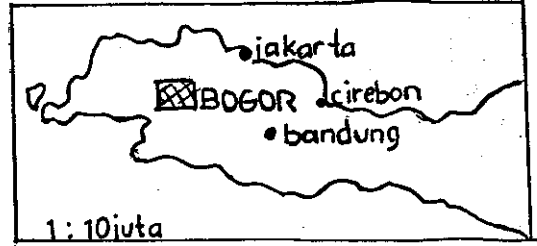 jakarta
BOGOR
cirebon
bandung
1 : 10 juta